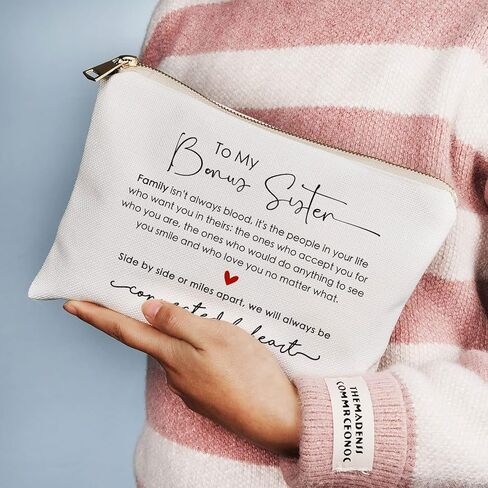 TO MY
Bonus Sister
Family isn't always blood, it's the people in your life
who want you in theirs: the ones who accept you for
who you are, the ones who would do anything to see
you smile and who love you no matter what.
Side by side or miles apart, we will always be
heart
THEMADENSS
COMMRCEONOC